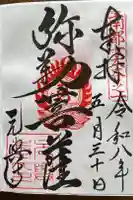 奉拝
令和八年
五月三十日
弥勒菩薩
元興寺